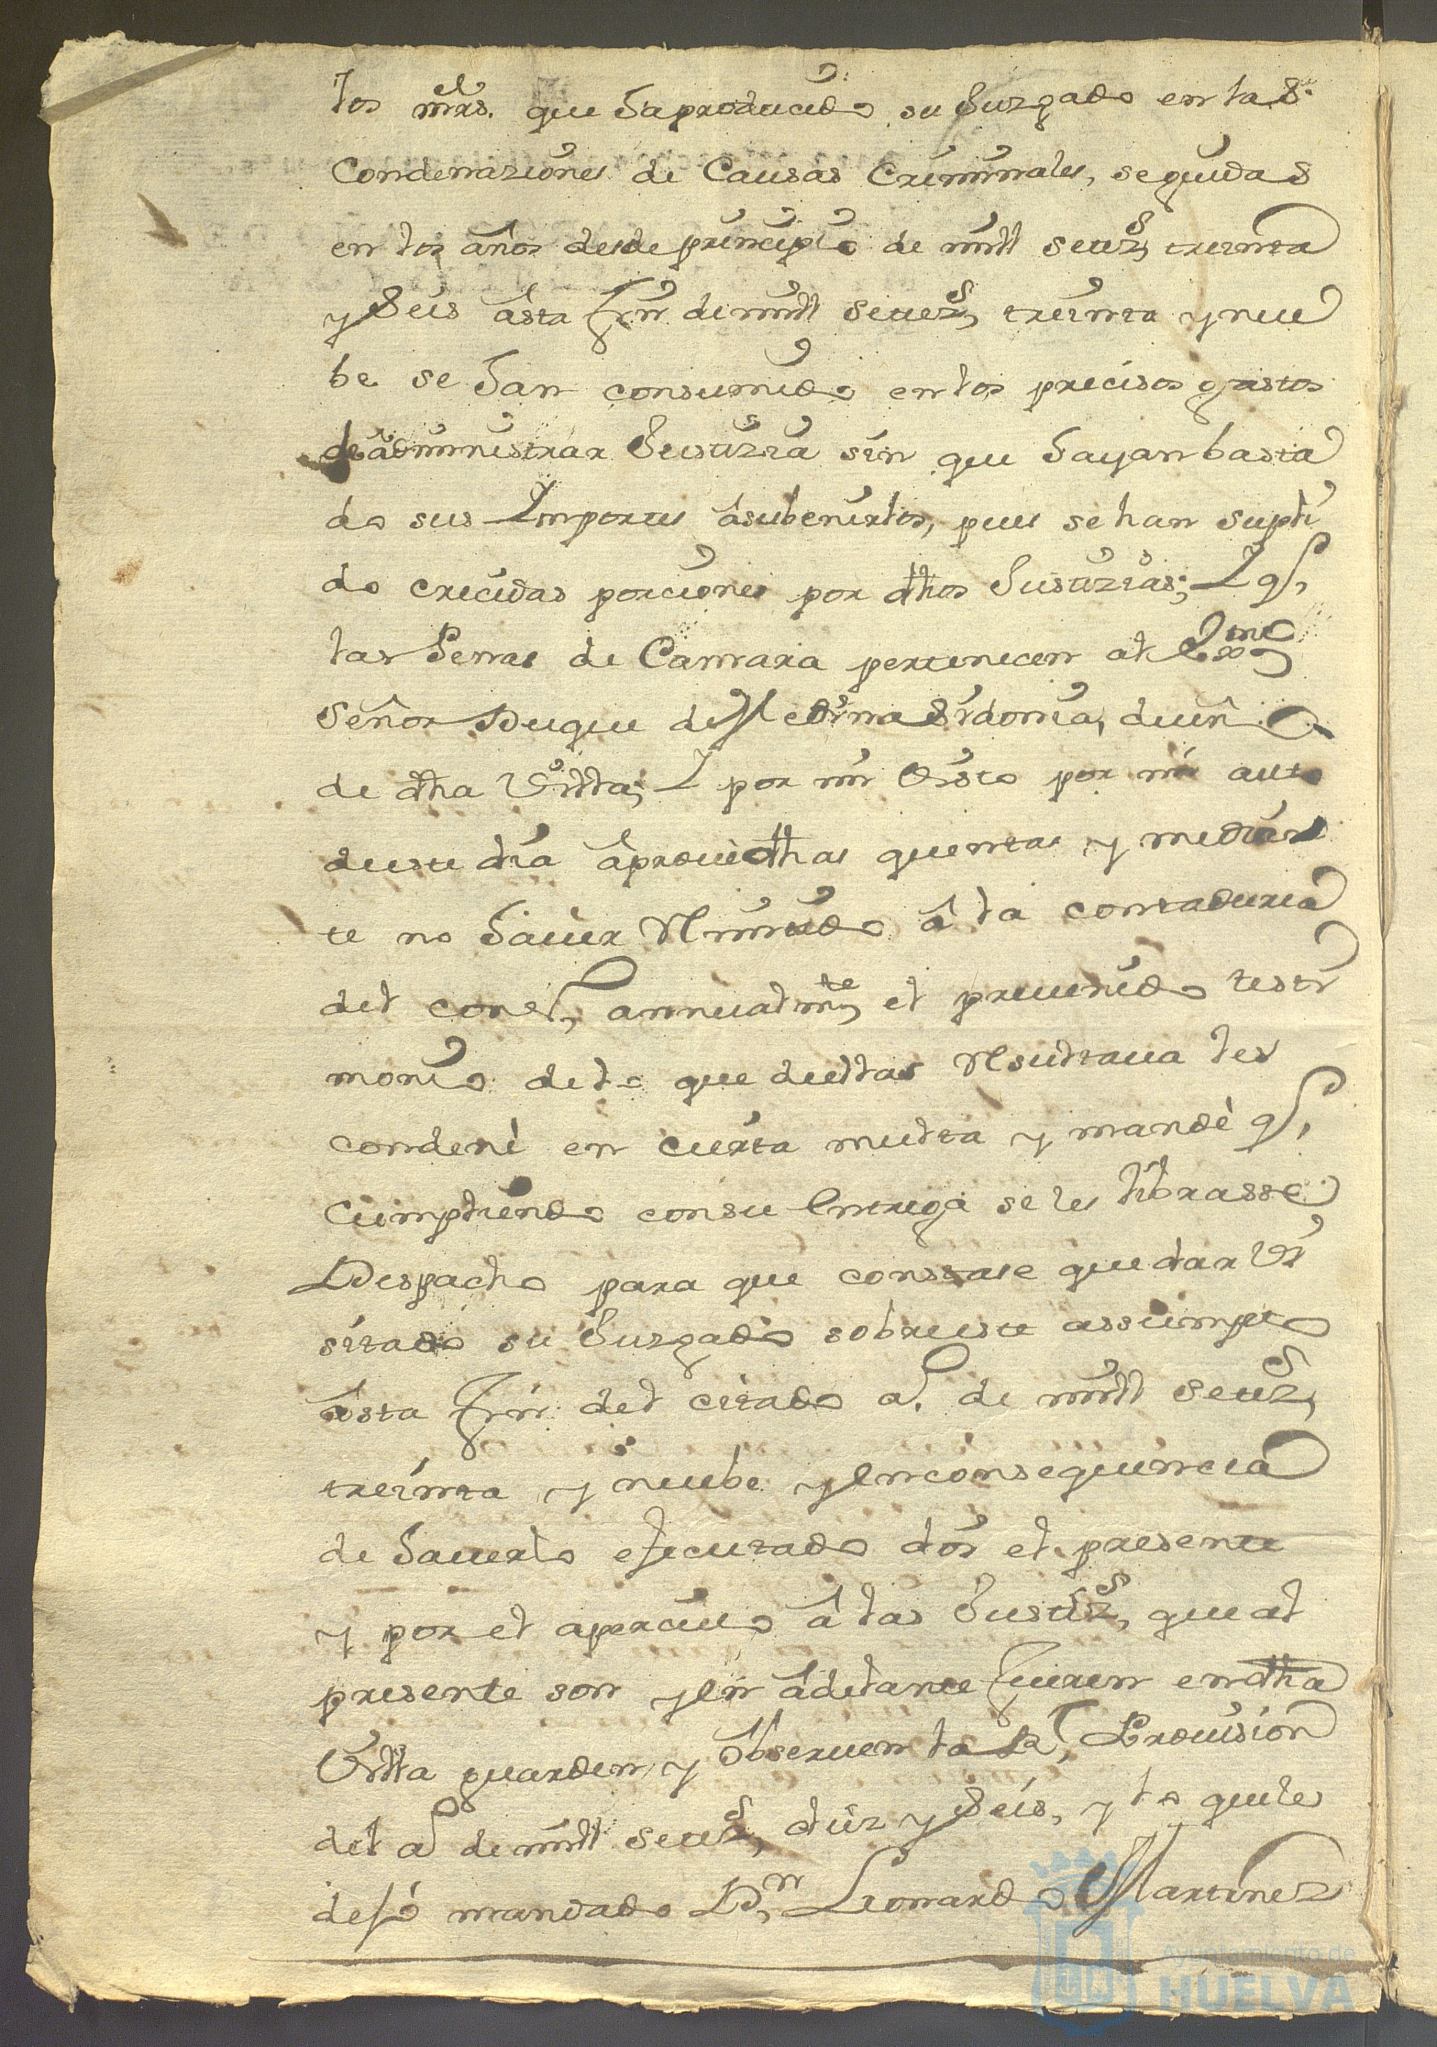 los mrs. que Ha producido su Juzgado en las
Condenaziones de Causas Criminales, seguidas
en los años desde principio de mill setezs treinta
y Seis asta fin de mill setezs treinta y nue
be se Han consumido en los precisos gastos
de administrar Justizia sin que Hayan basta
do sus Importes a subenirlos, pues se han supli
do crecidas porciones por dhos Justizias; Y q
las Penas de Camara pertenecen al Exmo
Señor Duque de Medina Sidonia, dueño
de dha Villa; Y por mi Visto por mi auto
de este dia aprove dhas quentas y median
te no Haver Remitido â la contaduria
del consº annualmte el prevenido testi
monio de lo que de ellas Resultava les
condenè en cierta multa y mandè q
cumpliendo con su Entrega se les librasse
Despacho para que constase quedar Vi
sitado su Juzgado sobre este assumpto
asta fin del citado aº de mill setezs
treinta y nuebe y En consequencia
de Haverlo ejecutado doi el presente
y por el apercivo â las Justizs que al
presente son y En adelante fueren en dha
Villa guarden y observen la Rl Provision
del aº de mill setezs diez y Seis, y lo que les
dejó mandado Dn Leonardo Martinez
Ayuntamiento de
HUELVA